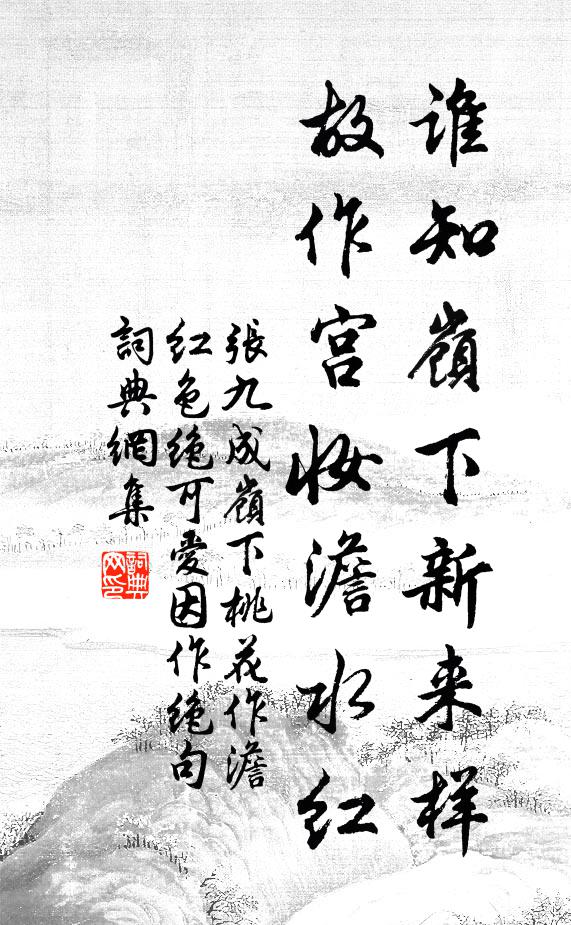 谁知嶺下新来样
故作宫妆澹水红
張九成嶺下桃花作澹
红色绝可愛因作绝句
詞典網集
詞典网印